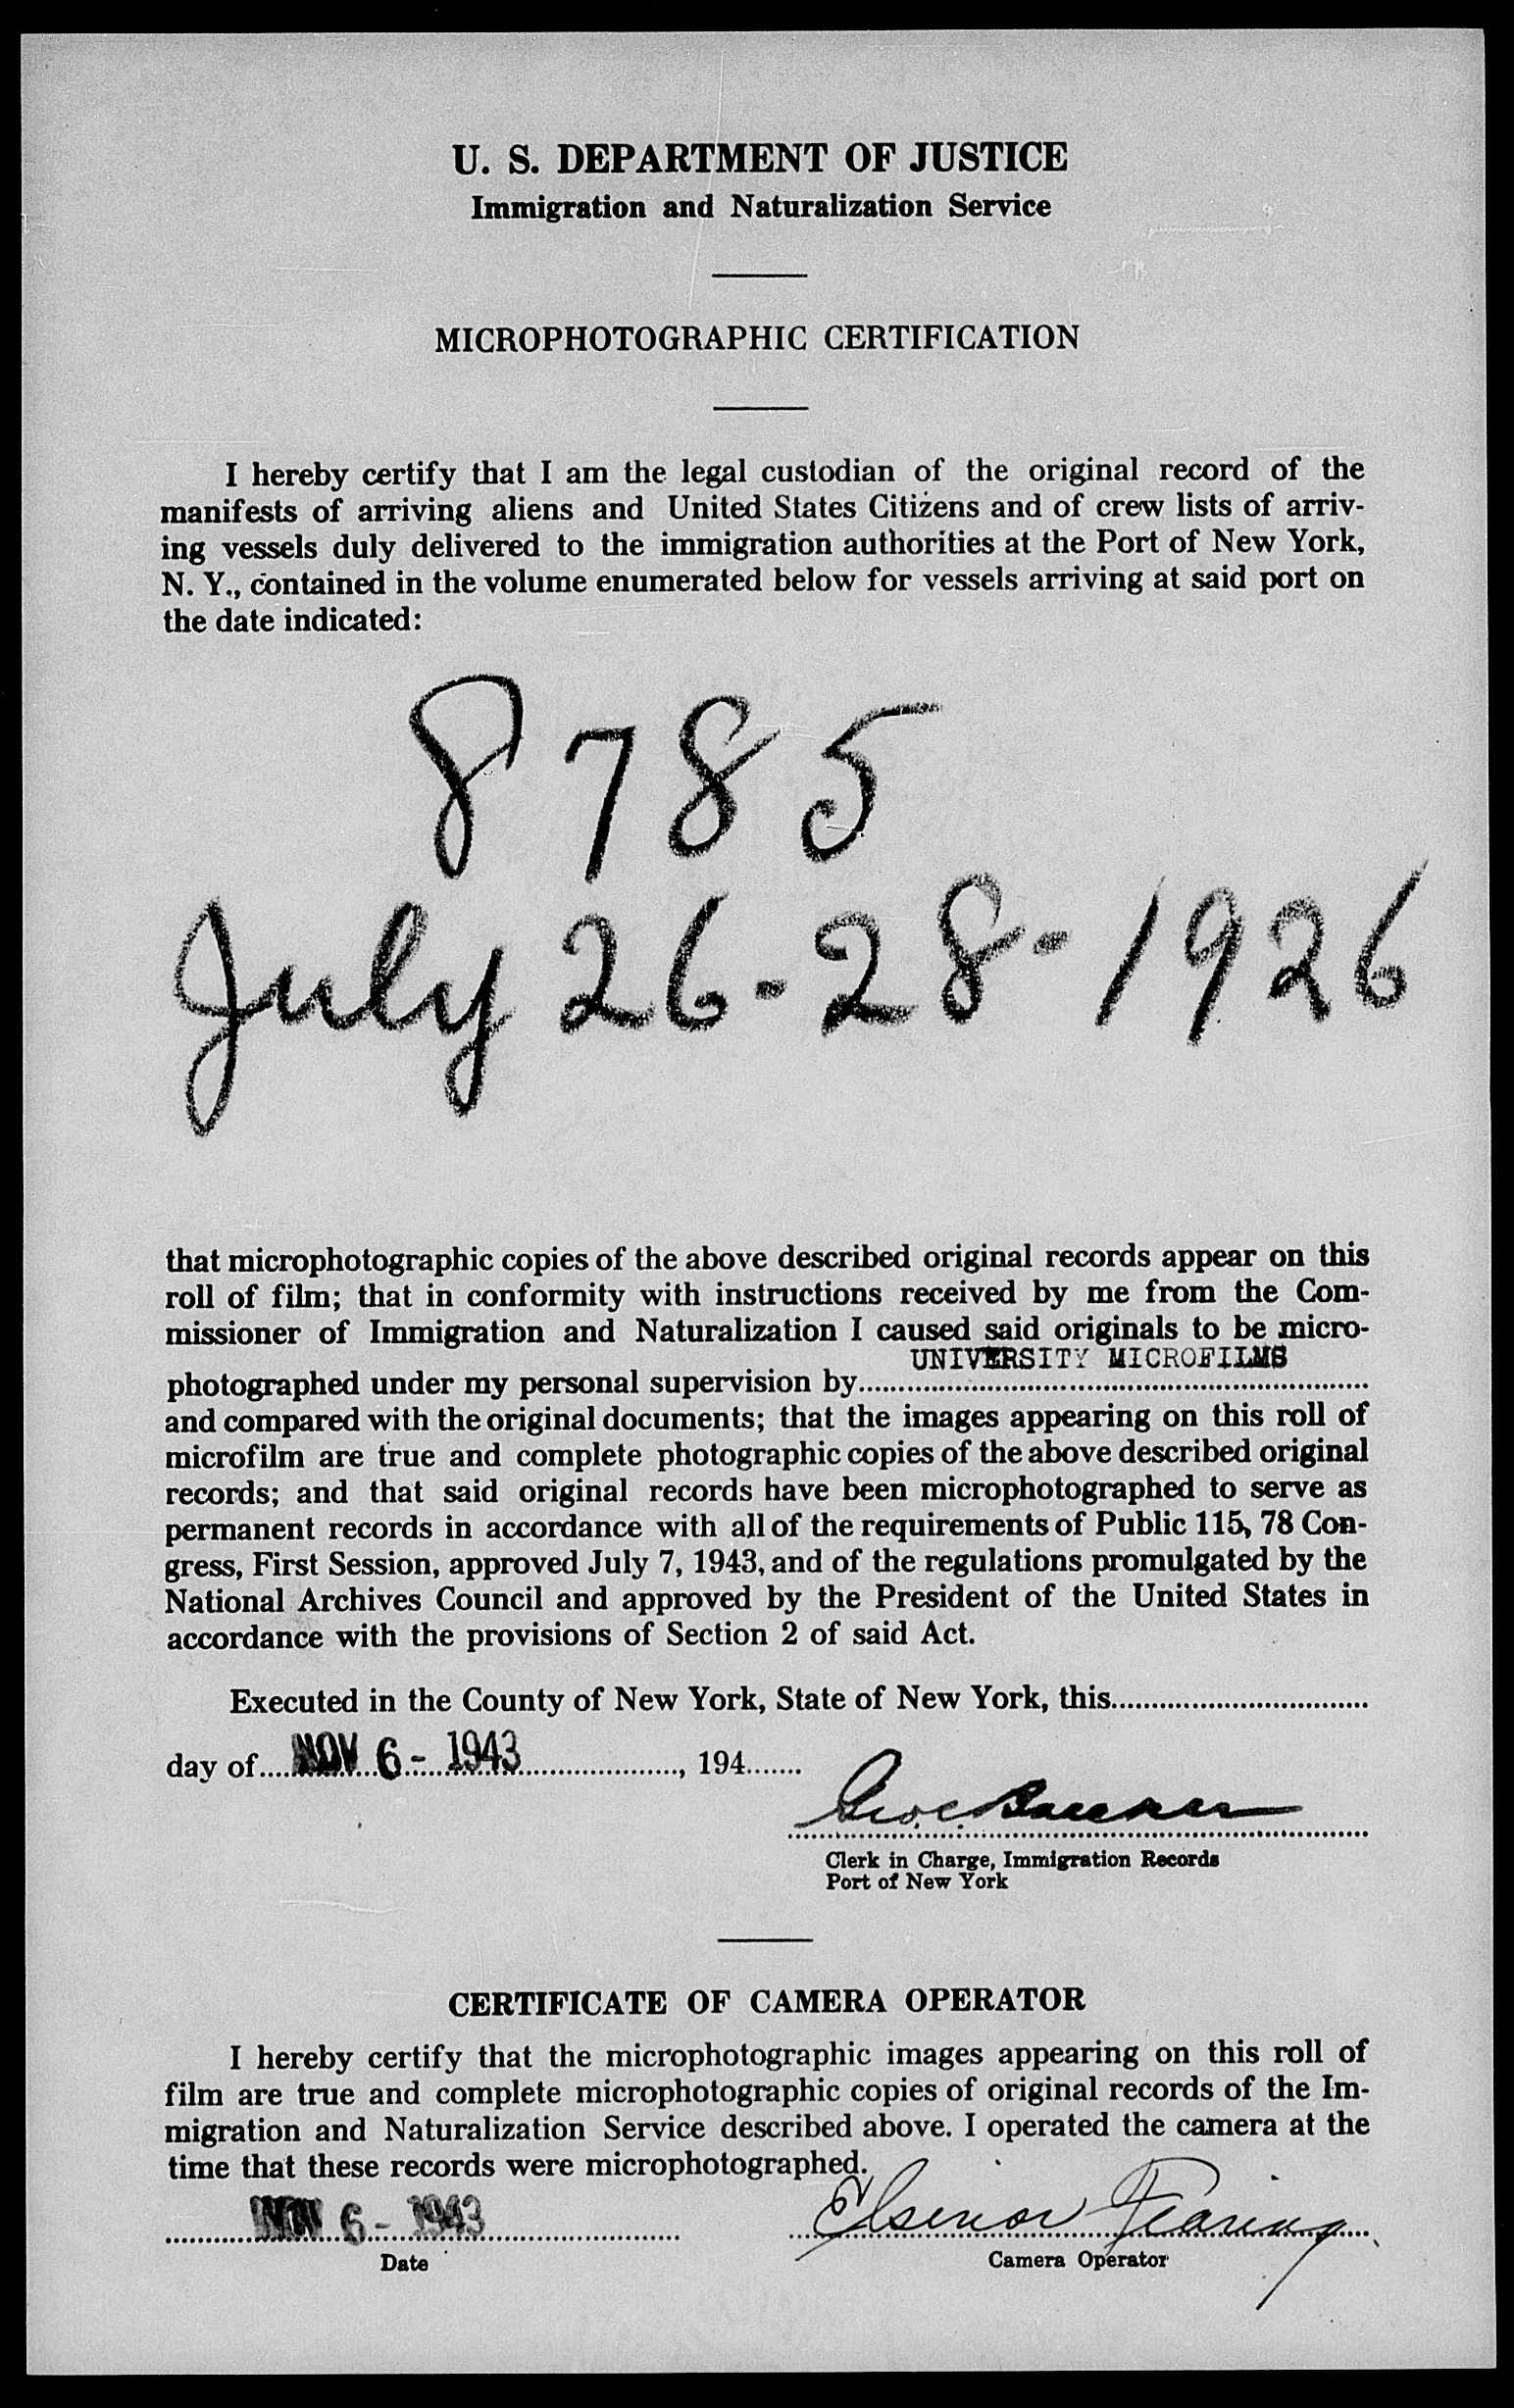 U. S. DEPARTMENT OF JUSTICE
Immigration and Naturalization Service
MICROPHOTOGRAPHIC CERTIFICATION
I hereby certify that I am the legal custodian of the original record of the
manifests of arriving aliens and United States Citizens and of crew lists of arriv-
ing vessels duly delivered to the immigration authorities at the Port of New York,
N. Y., contained in the volume enumerated below for vessels arriving at said port on
the date indicated:
8785
July 26-28-1926
that microphotographic copies of the above described original records appear on this
roll of film; that in conformity with instructions received by me from the Com-
missioner of Immigration and Naturalization I caused said originals to be micro-
UNIVERSITY MICROFILMS
photographed under my personal supervision by
and compared with the original documents; that the images appearing on this roll of
microfilm are true and complete photographic copies of the above described original
records; and that said original records have been microphotographed to serve as
permanent records in accordance with all of the requirements of Public 115, 78 Con-
gress, First Session, approved July 7, 1943, and of the regulations promulgated by the
National Archives Council and approved by the President of the United States in
accordance with the provisions of Section 2 of said Act.
Executed in the County of New York, State of New York, this
day of NOV 6 - 1943, 194
Clerk in Charge, Immigration Records
Port of New York
CERTIFICATE OF CAMERA OPERATOR
I hereby certify that the microphotographic images appearing on this roll of
film are true and complete microphotographic copies of original records of the Im-
migration and Naturalization Service described above. I operated the camera at the
time that these records were microphotographed.
NOV 6 - 1943
Date
Camera Operator